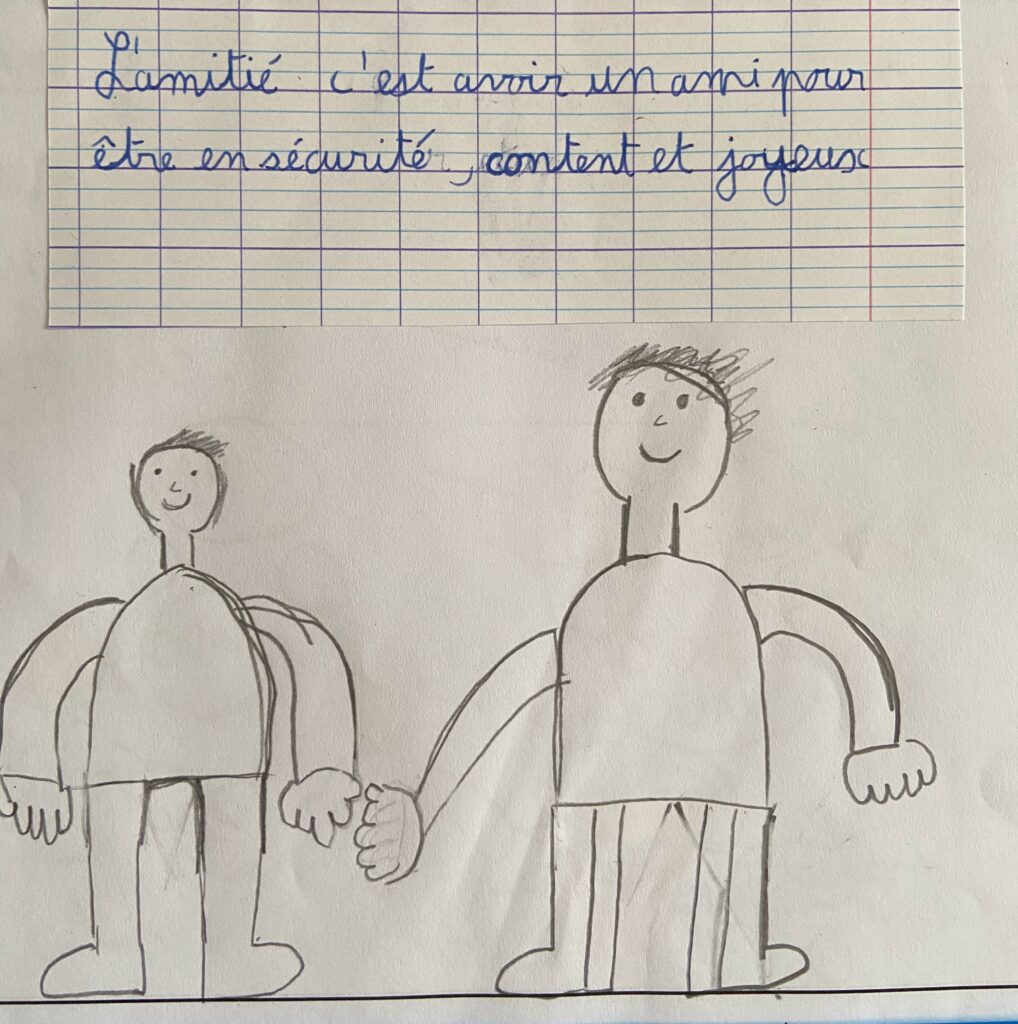 L'amitié c'est avoir un ami pour
être en sécurité, content et joyeux